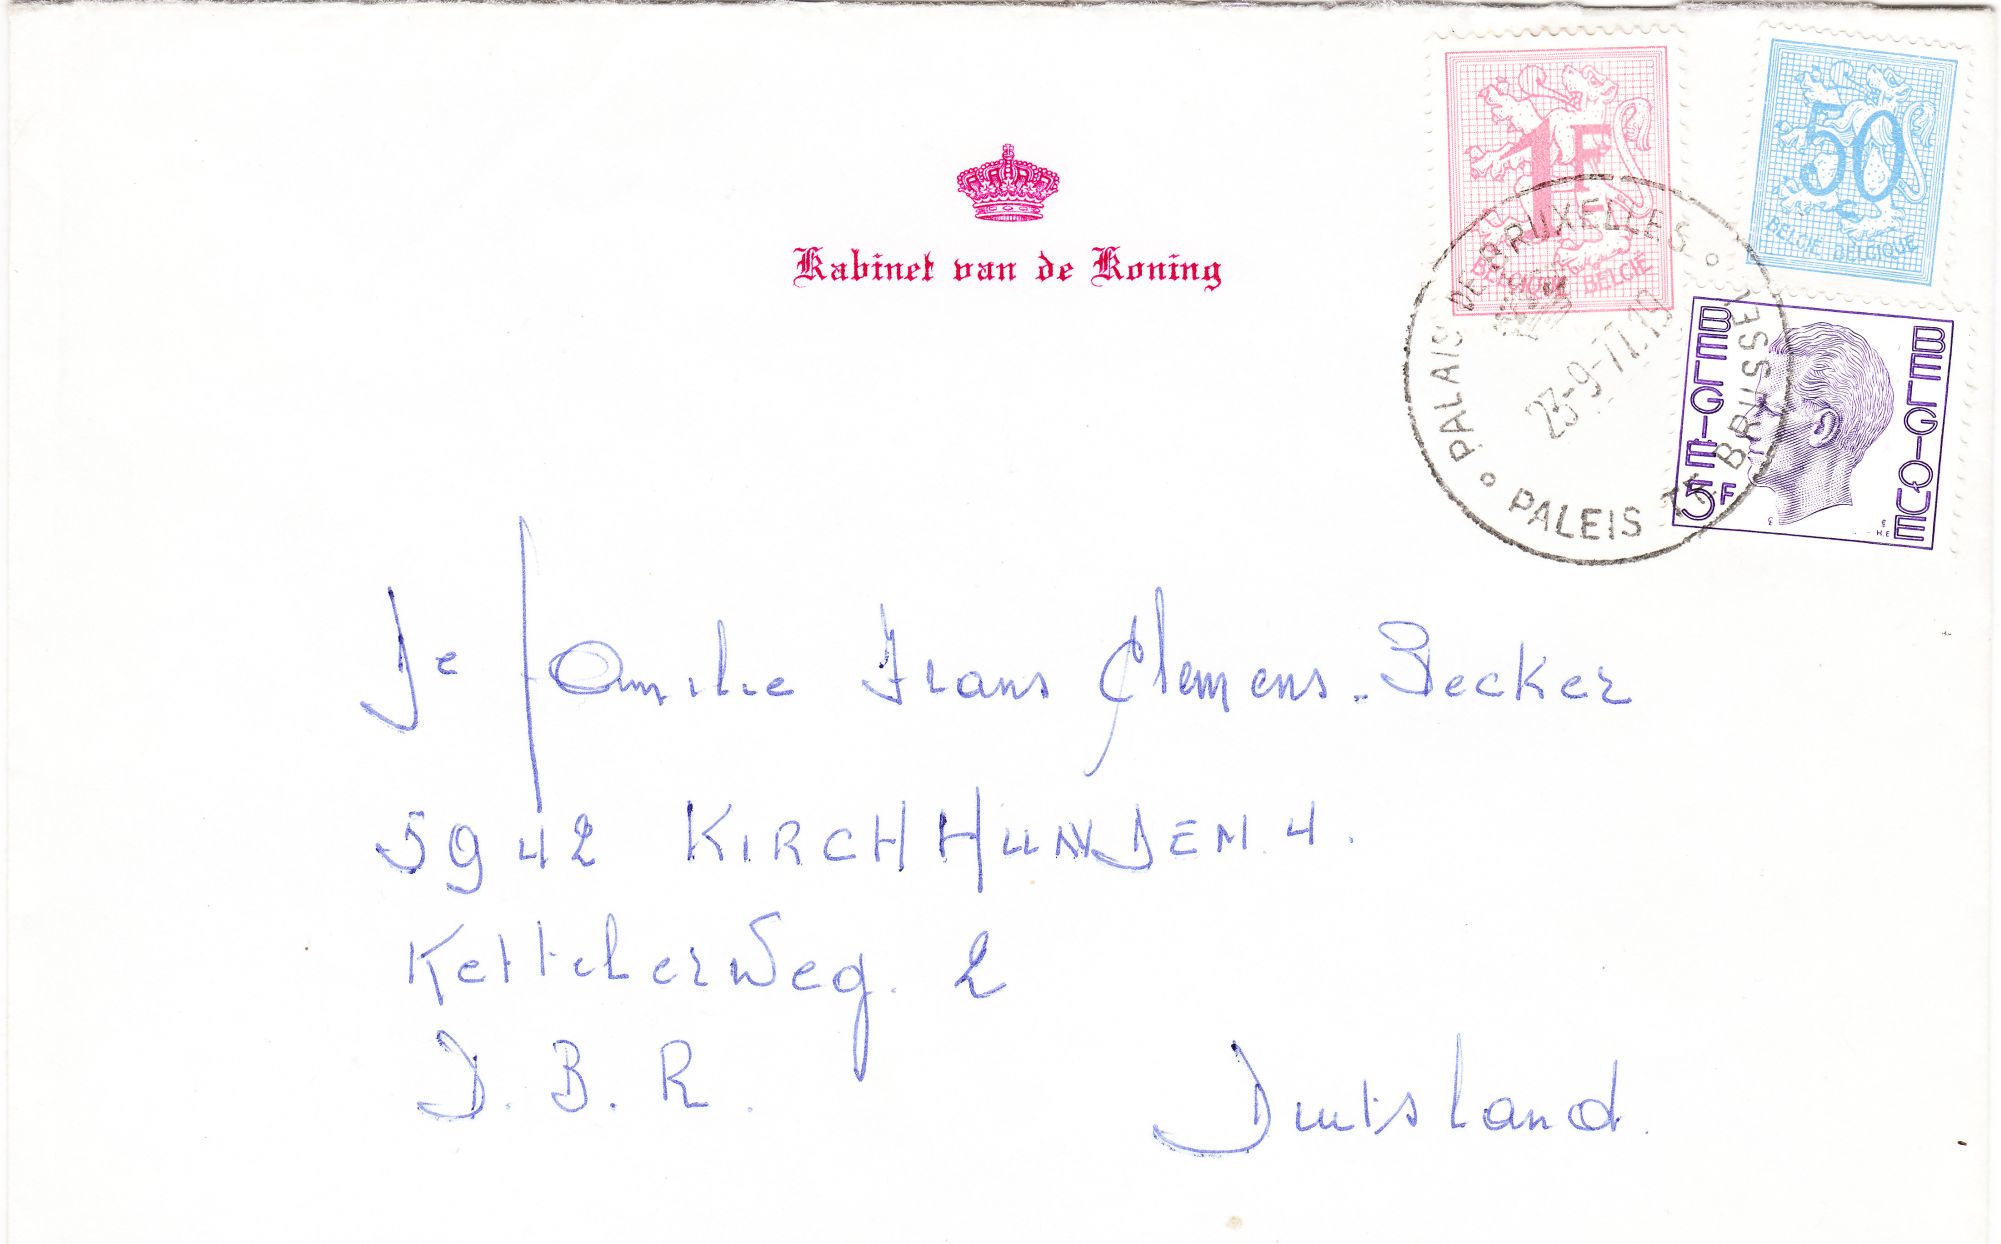 Kabinet van de Koning
1F
BELGIQUE BELGIË
50
BELGIË BELGIQUE
BELGIË
BELGIQUE
5F
PALAIS DE BRUXELLES
PALEIS TE BRUSSEL
23-9-77.19
De familie Frans Clemens-Becker
5942 KIRCHHUNDEM 4.
Kettelerweg. 2
D. B. R.
Duitsland.